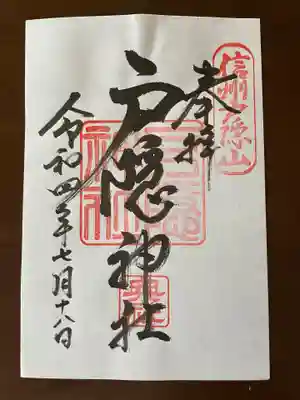 信州戸隠山
奉拝
戸隠神社
令和四年七月十八日